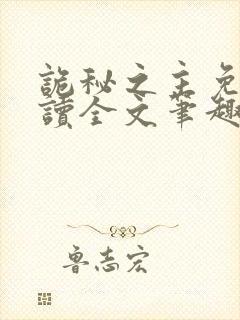 詭秘之主免
讀全文筆趣
魯志宏